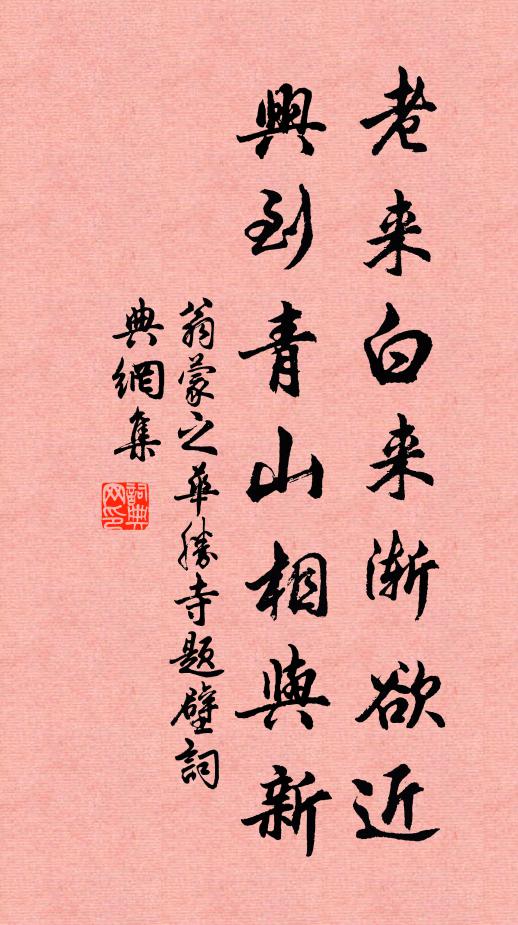 老来白来渐欲近
興到青山相與新
翁蒙之華勝寺題壁詞
典網集
詞典网印